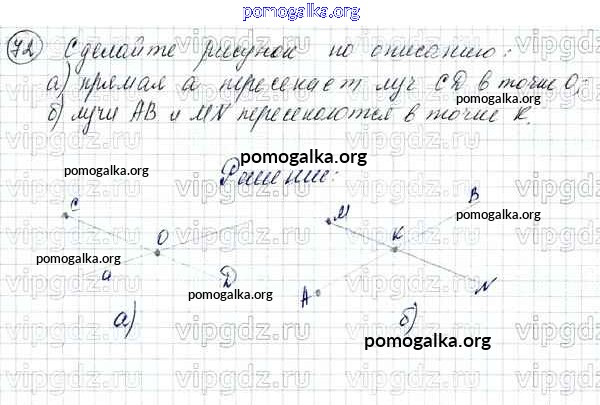 pomogalka.org
72 Сделайте рисунок по описанию:
а) прямая а пересекает луч CD в точке О;
pomogalka.org
б) лучи AB и MN пересекаются в точке K.
pomogalka.org
pomogalka.org
Решение:
C
O
a
D
M
K
B
A
N
pomogalka.org
pomogalka.org
pomogalka.org
pomogalka.org
а)
б)
pomogalka.org
vipgdz.ru vipgdz.ru vipgdz.ru vipgdz.ru